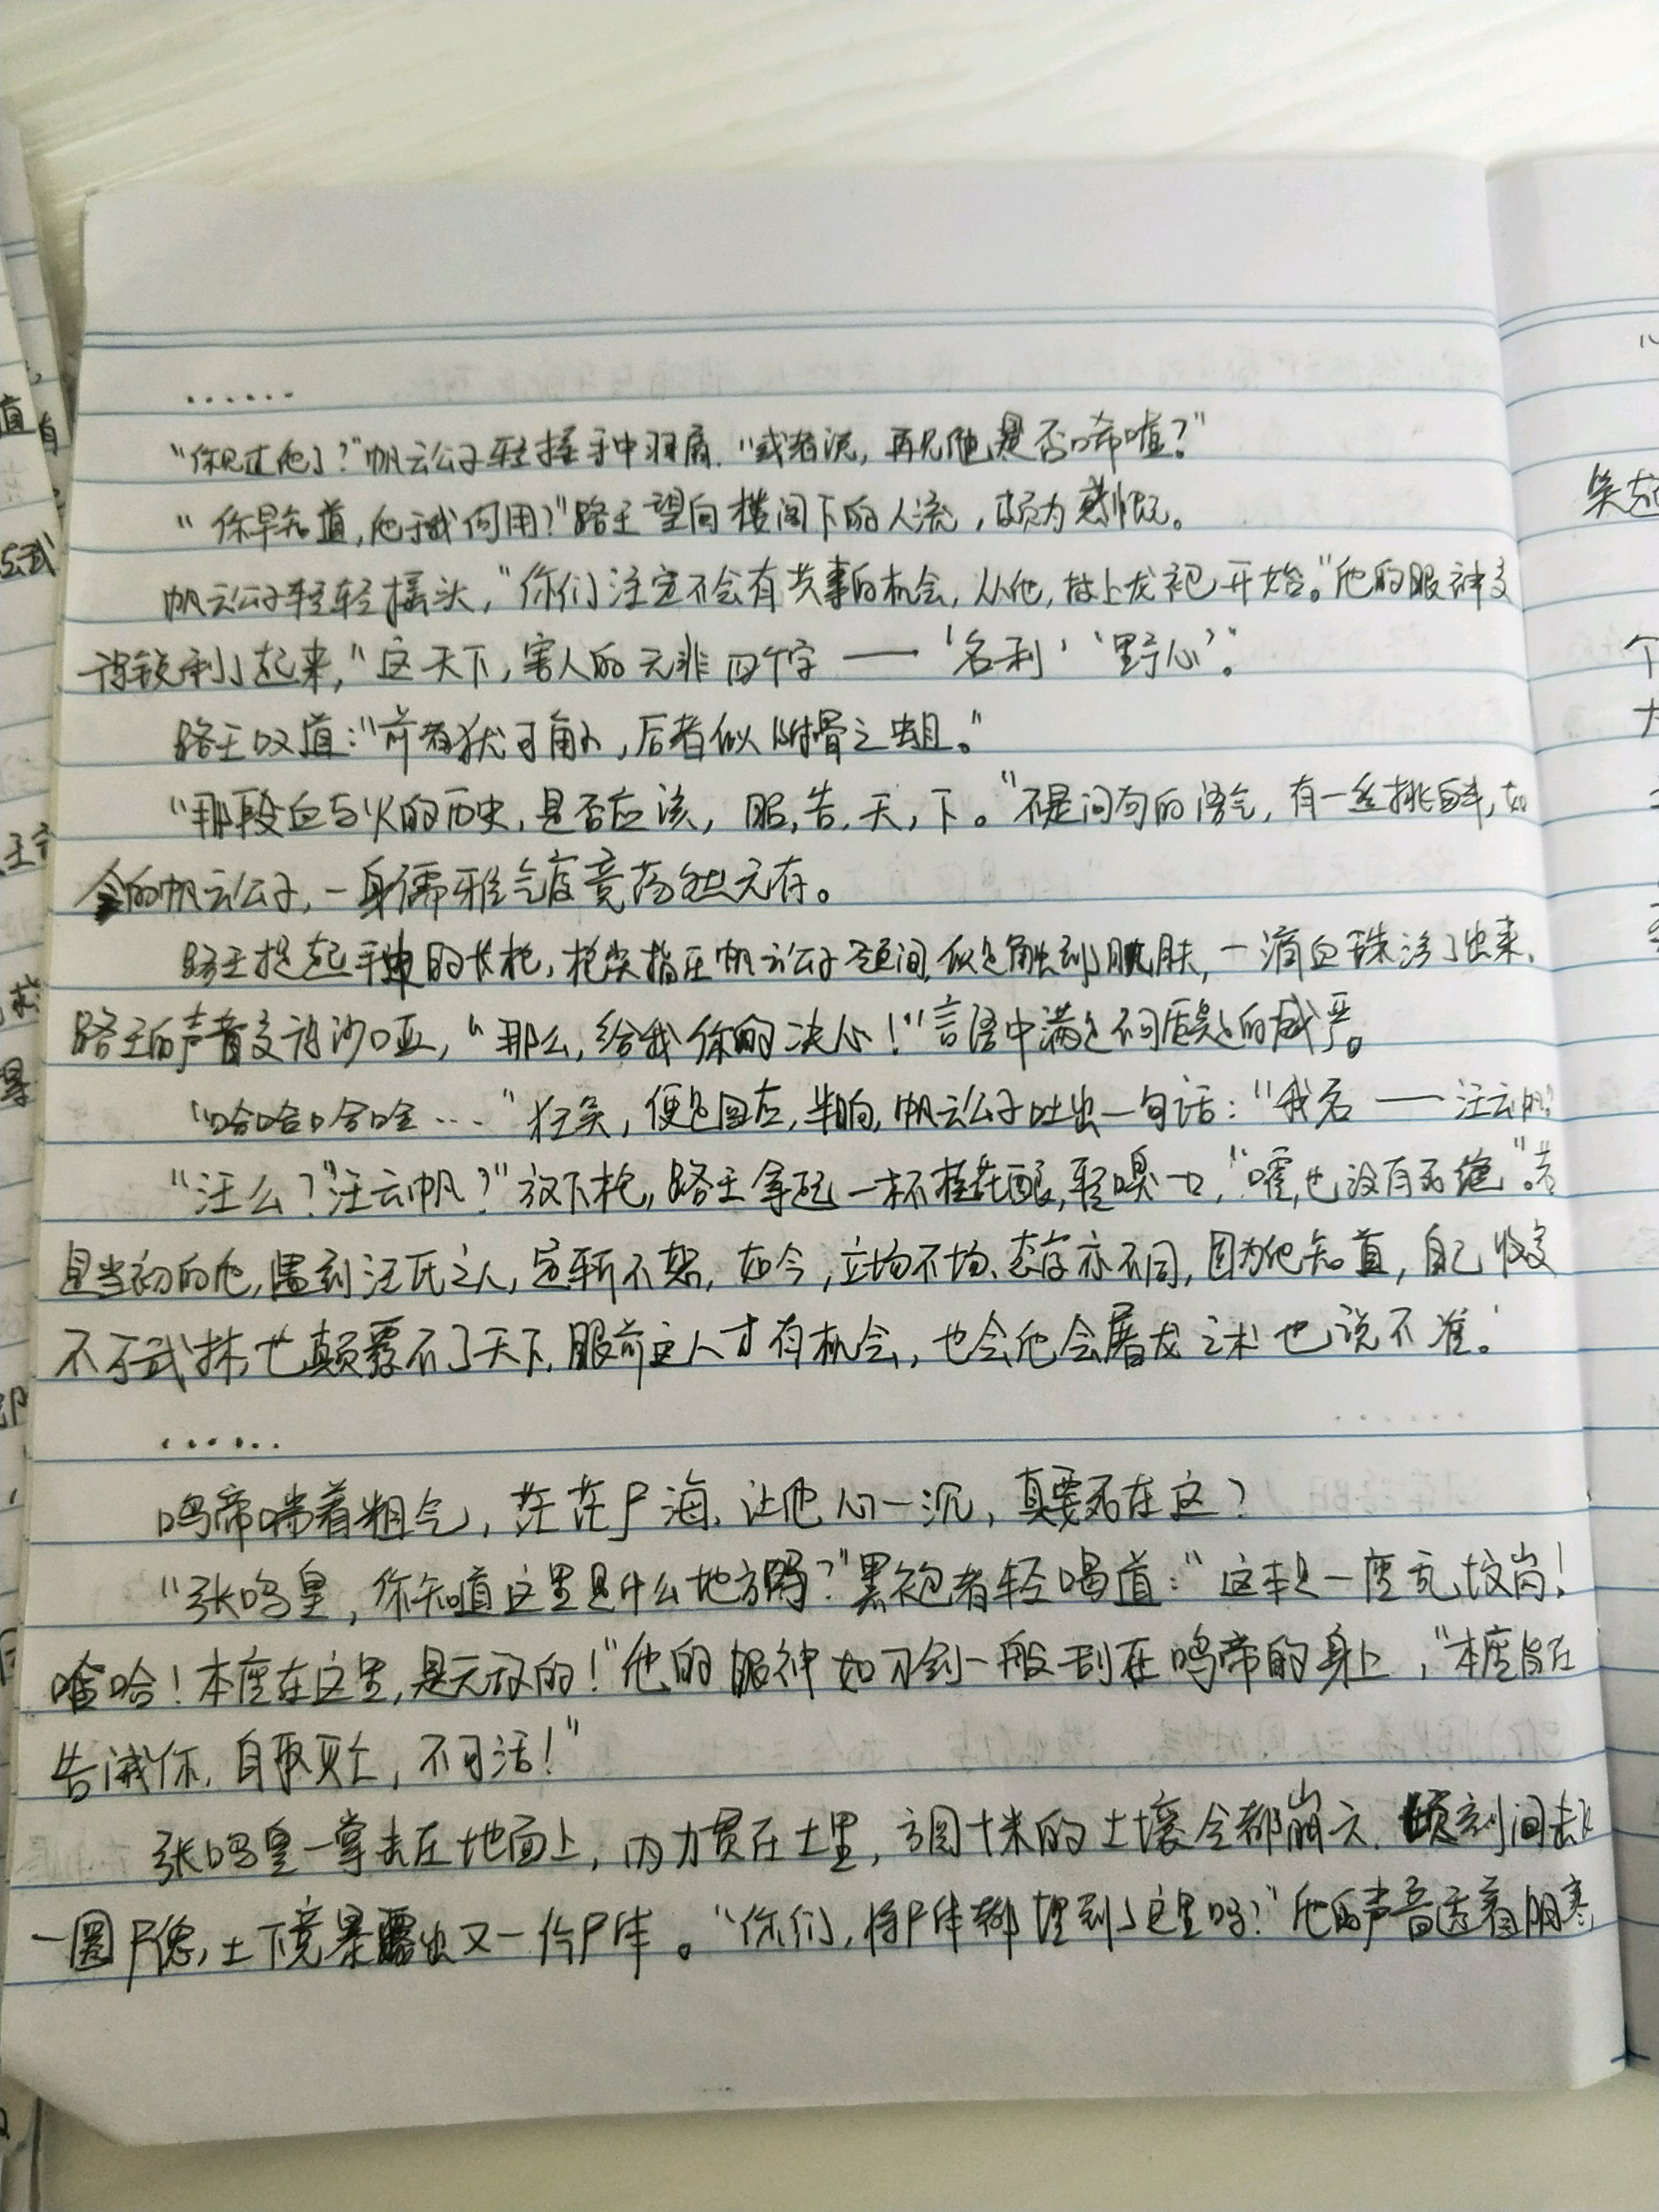 ……
“你见过他了？”帆云公子轻摇手中羽扇，“或者说，再见他是否唏嘘？”
“你早知道，他于我何用？”路王望向楼阁下的人流，颇为感慨。
帆云公子轻轻摇头，“你们注定不会有共事的机会，从他，披上龙袍开始。”他的眼神变
得锐利了起来，“这天下，害人的无非四个字——‘名利’‘野心’。”
路王叹道：“前者犹可解，后者似附骨之蛆。”
“那段血与火的历史，是否应该，昭，告，天，下。”不是问句的语气，有一丝挑衅，如
今的帆云公子，一身儒雅气度竟荡然无存。
路王提起手中的长枪，枪尖指在帆云公子颈间，似是触到了肌肤，一滴血珠渗了出来，
路王的声音变得沙哑，“那么，给我你的决心！”言语中满是不可质疑的威严。
“哈哈哈哈…”狂笑，便是回应，半晌，帆云公子吐出一句话：“我名——汪云帆”
“汪么？汪云帆？”放下枪，路王拿起一杯桂花酿，轻嗅一口，“嚯，也没有死绝”。若
是当初的他，遇到汪氏之人，定斩不恕，如今，立场不场、态度亦不同，因为他知道，自己收复
不了武林，也颠覆不了天下，眼前这人才有机会，也会他会屠龙之术也说不准。
……
鸣帝喘着粗气，茫茫尸海，让他心一沉，真要死在这？
“张鸣皇，你知道这里是什么地方吗？”黑袍者轻喝道：“这本是一座乱坟岗！
哈哈！本座在这里，是无敌的！”他的眼神如刀剑一般刮在鸣帝的身上，“本座旨在
告诫你，自取灭亡，不可活！”
张鸣皇一掌击在地面上，内力贯在土里，方圆十米的土壤全都崩穴，顷刻间
一圈尸傀，土下竟暴露出又一个尸体。“你们，将尸体都埋到了这里吗？”他的声音透着阴寒
笑
个